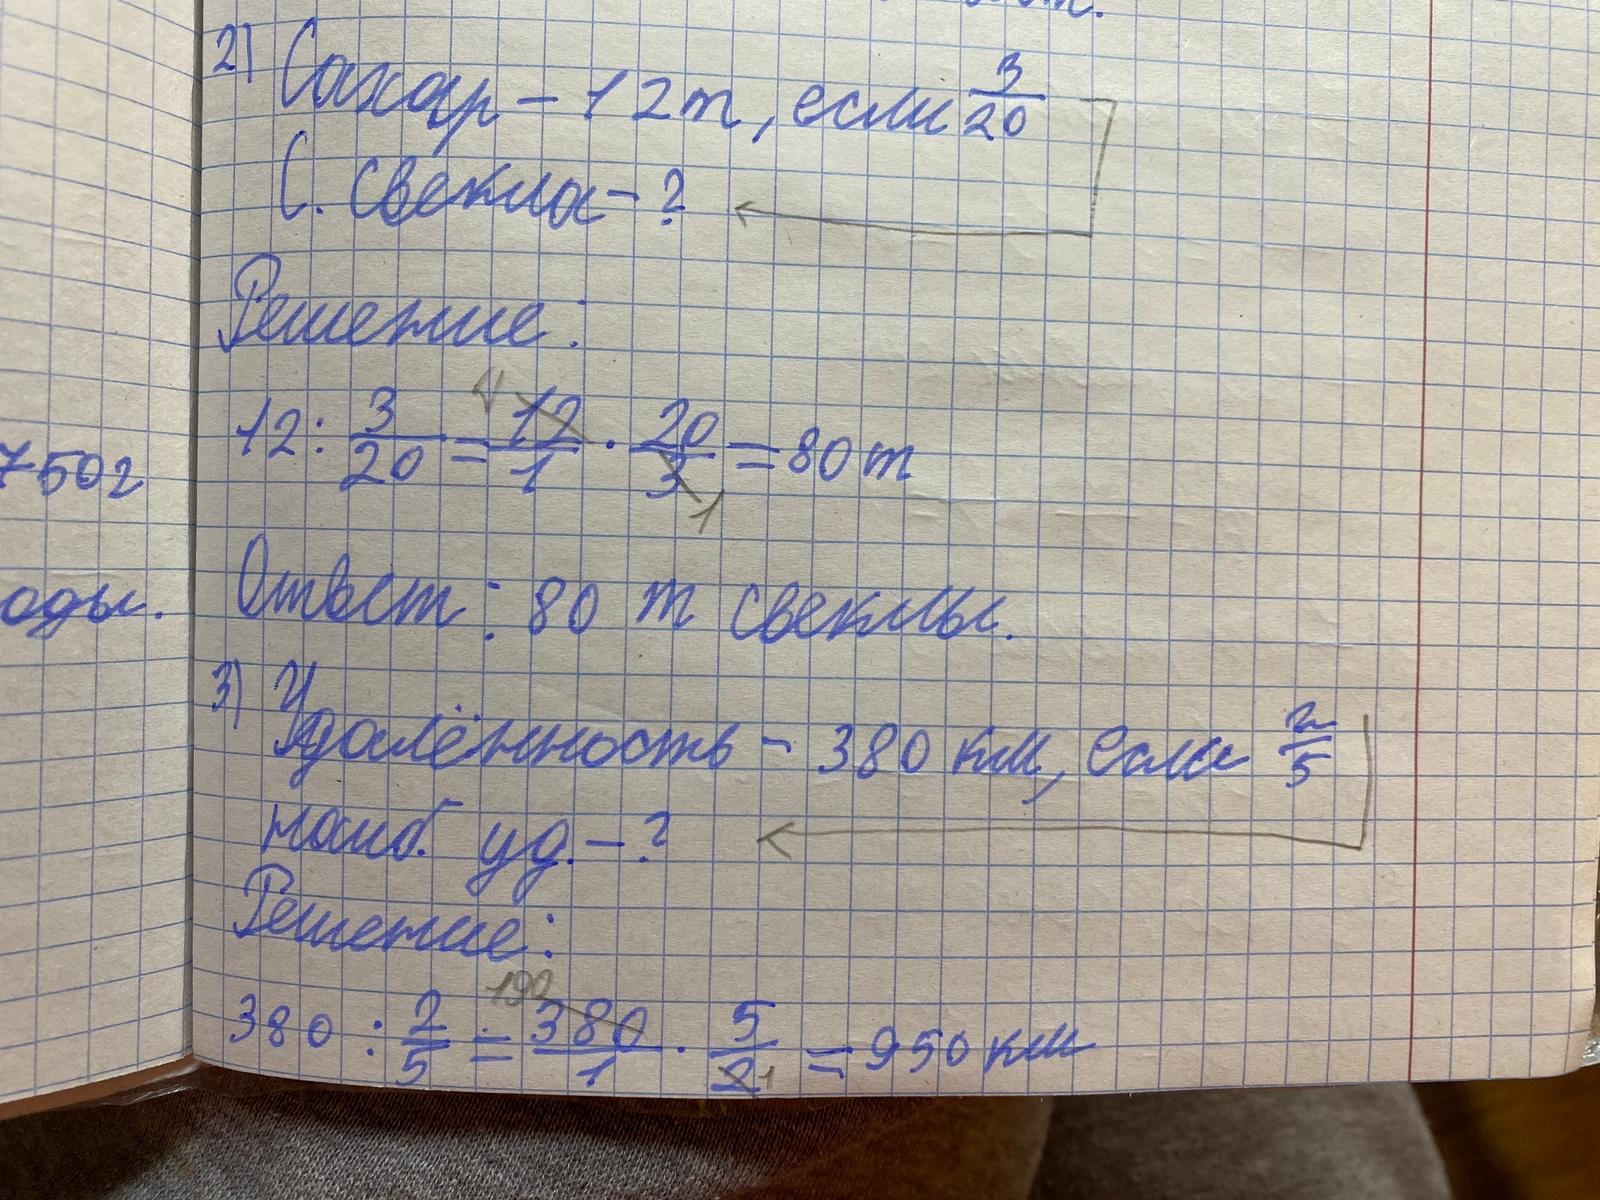 2) Сахар – 12 т, если 3/20
С. свекла – ?
Решение:
12 : 3/20 = 12/1 · 20/3 = 80 т
4
1
7 50 г
Ответ: 80 т свеклы.
оды.
3) Удалённость – 380 км, если 2/5
наиб. уд. – ?
Решение:
190
380 : 2/5 = 380/1 · 5/2 = 950 км
1